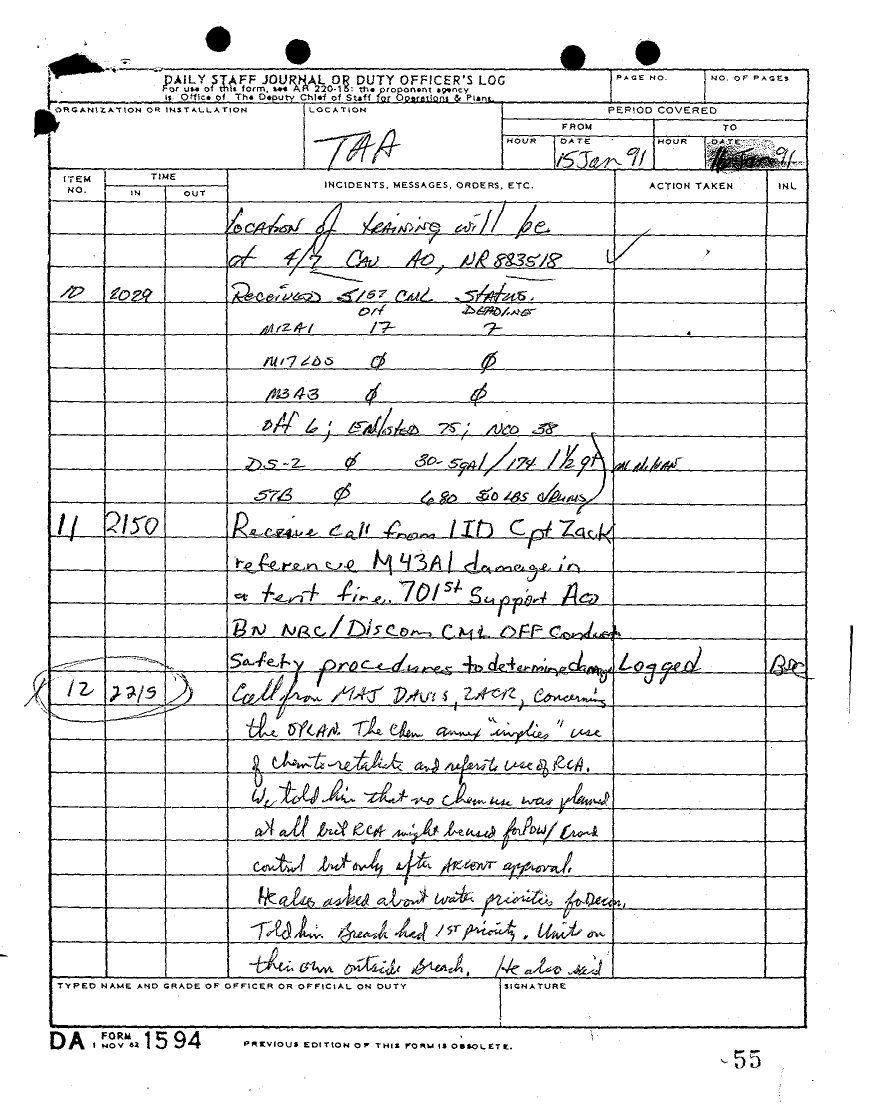 DAILY STAFF JOURNAL OR DUTY OFFICER'S LOG
For use of this form, see AR 220-15; the proponent agency
is Office of The Deputy Chief of Staff for Operations & Plans.
PAGE NO.
NO. OF PAGES
ORGANIZATION OR INSTALLATION
LOCATION
TAA
PERIOD COVERED
FROM
TO
HOUR
DATE
15 Jan 91
HOUR
DATE
Jan 91
ITEM NO.
TIME
IN
OUT
INCIDENTS, MESSAGES, ORDERS, ETC.
ACTION TAKEN
INL
location of training will be
at 4/7 Cav AO, NR 883518 ✓
10 2029 Received 5/157 CML Status.
OH DEADLINE
M12A1 17 7
M17LDS Ø Ø
M3A3 Ø Ø
Off 6; Enlisted 75; NCO 38
DS-2 Ø 30-5gal/174 1 1/2 qt
STB Ø 680 50 LBS drums
11 2150 Receive call from 1ID Cpt Zack
reference M43A1 damage in
a tent fire. 701st Support
BN NRC/Discom CML OFF Conduct
Safety procedures to determine damage Logged BDC
12 2215 Call from MAJ DAVIS, 2ACR, concerning
the OPLAN. The Chem annex "implies" use
of chem to retaliate and refers to use of RCA.
We told him that no chem use was planned
at all but RCA might be used for POW/Crowd
control but only after ARCENT approval.
He also asked about water priorities for Decon.
Told him Breach had 1ST priority. Units on
their own outside Breach. He also said
TYPED NAME AND GRADE OF OFFICER OR OFFICIAL ON DUTY
SIGNATURE
DA FORM 1594
1 NOV 62
PREVIOUS EDITION OF THIS FORM IS OBSOLETE.
55